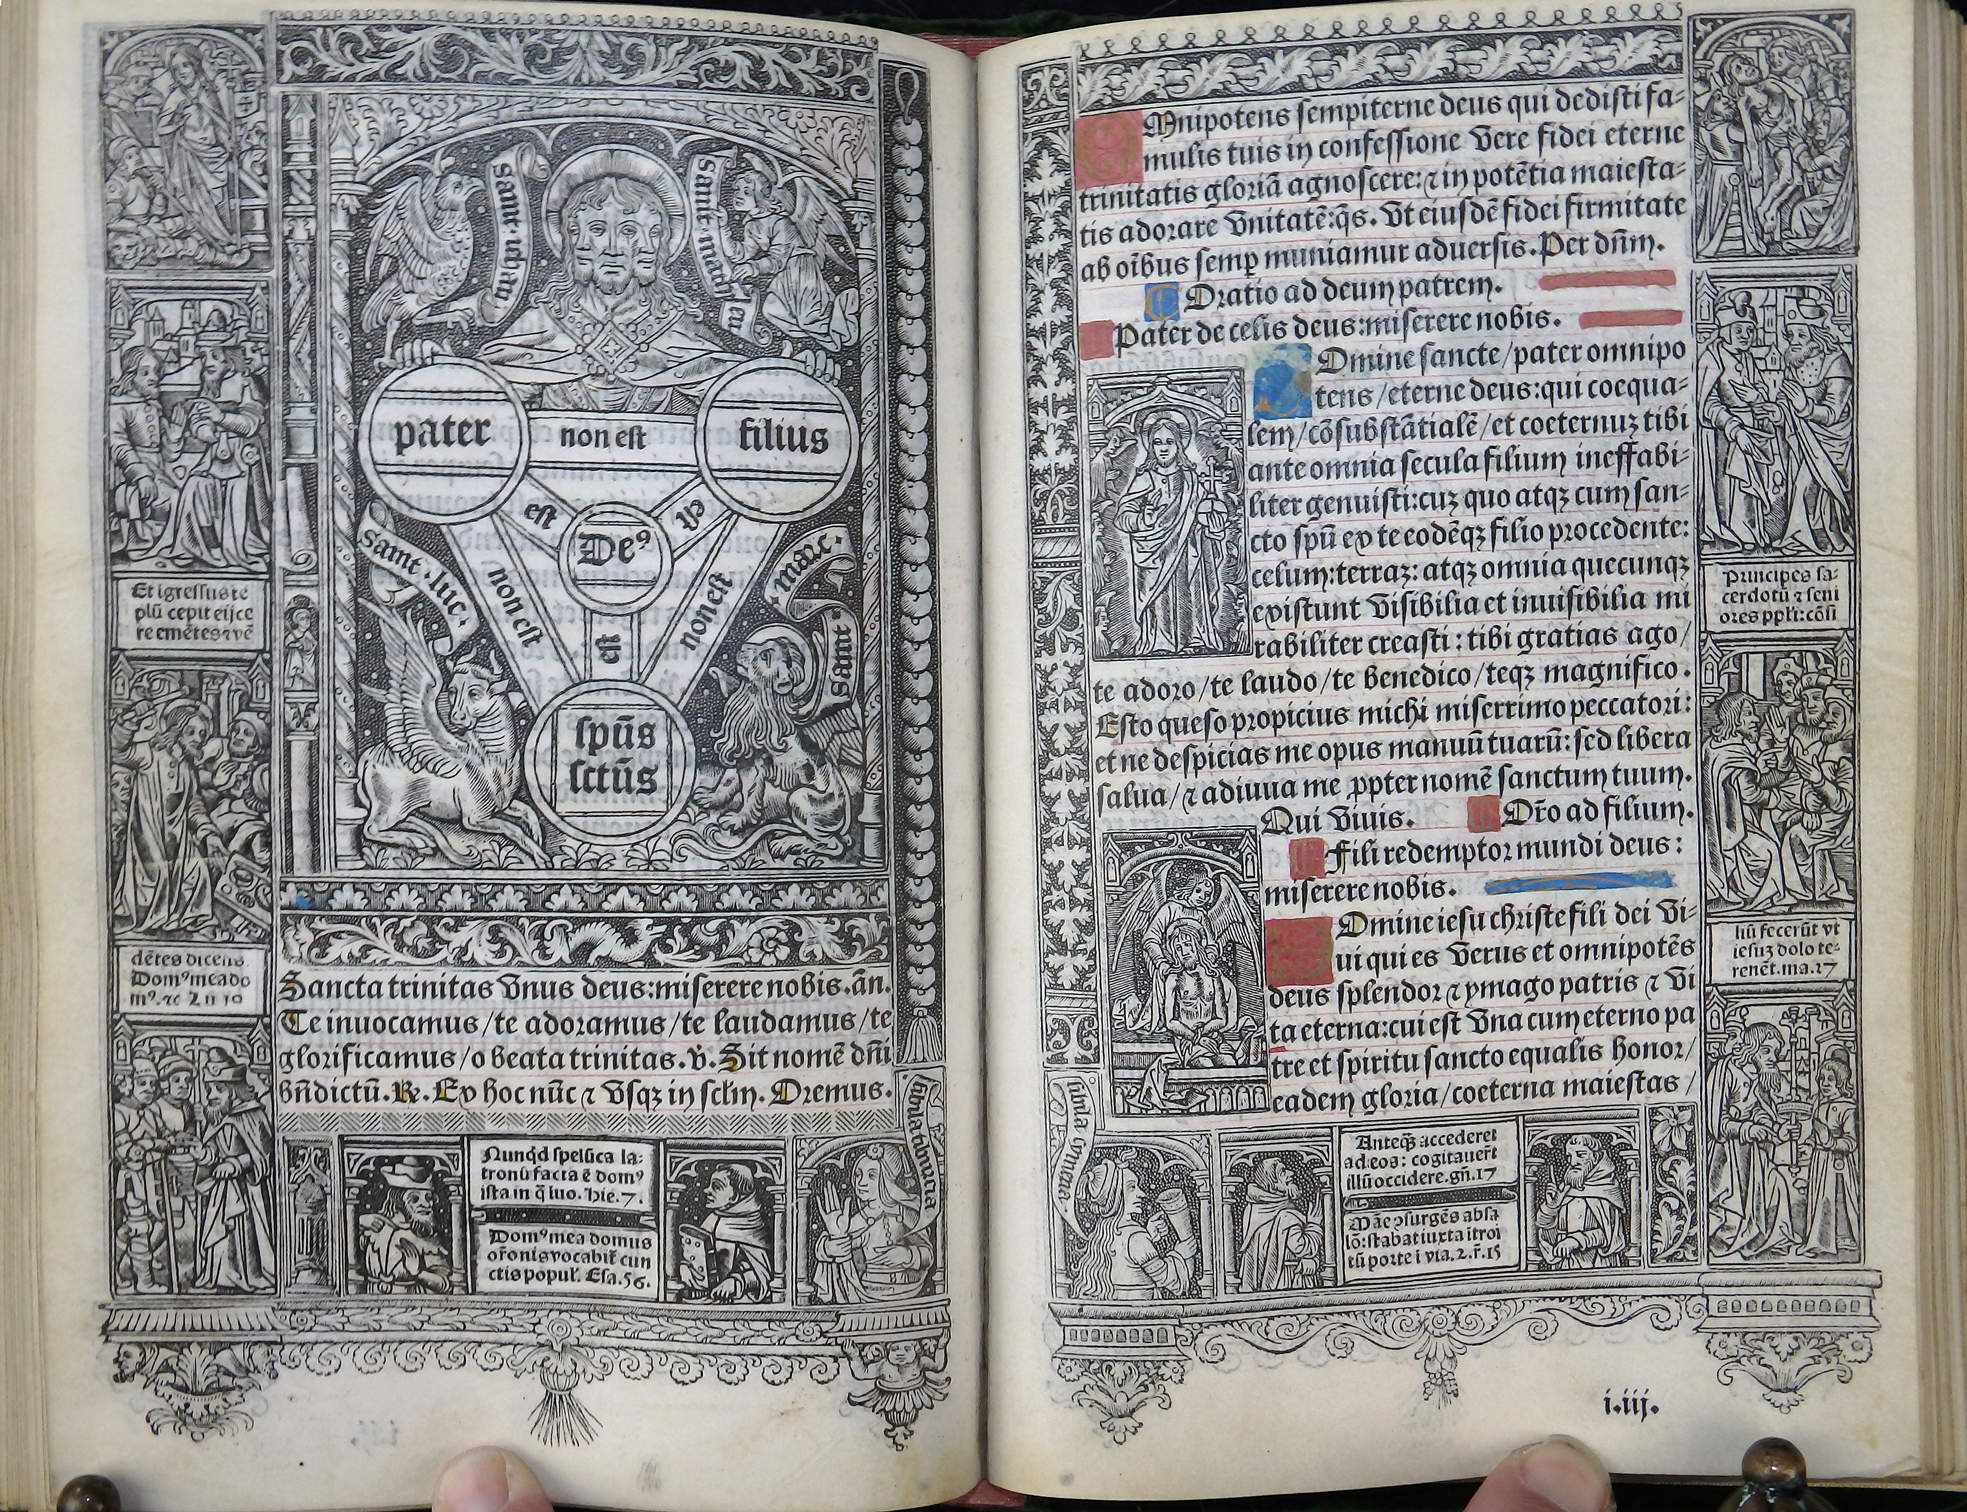 sanct · ioha
sanct · matheu
pater
non est
filius
est
est
De⁹
non est
est
non est
sanct · luc ·
sanct · marc ·
spūs
sctūs
Et īgressus tē
plū cepit eijce
re emētes ⁊ vē
dētes dicens.
Dom⁹ mea do
m⁹. ⁊c
Sancta trinitas vnus deus: miserere nobis. ān.
Te inuocamus / te adoramus / te laudamus / te
glorificamus / o beata trinitas. v̄. Sit nomē dn̄i
bn̄dictū. ℟. Ex hoc nūc ⁊ vsqꝫ in sclm̄. Oremus.
Nunqd spelūca la-
tronū facta ē dom⁹
ista in q̄ iuo. hie. 7.
Dom⁹ mea domus
or̄onis vocabit̄ cun
ctis popul̄. Esa. 56.
Omnipotens sempiterne deus qui dedisti fa-
mulis tuis in confessione vere fidei eterne
trinitatis gloriā agnoscere: ⁊ in potētia maiesta-
tis adorare vnitatē: q̄s. vt eiusdē fidei firmitate
ab oībus semp̱ muniamur aduersis. Per dn̄m.
Oratio ad deum patrem.
Pater de celis deus: miserere nobis.
Domine sancte / pater omnipo
tens / eterne deus: qui coequa-
lem / cōsubstātialē / et coeternuꝫ tibi
ante omnia secula filium ineffabi-
liter genuisti: cuꝫ quo atqꝫ cum san-
cto spū ex te eodēqꝫ filio procedente:
celum: terraꝫ: atqꝫ omnia quecunqꝫ
existunt visibilia et inuisibilia mi
rabiliter creasti: tibi gratias ago /
te adoro / te laudo / te benedico / teqꝫ magnifico.
Esto queso propicius michi miserrimo peccatori:
et ne despicias me opus manuū tuarū: sed libera
salua / ⁊ adiuua me ꝓpter nomē sanctum tuum.
Qui viuis. Or̄o ad filium.
Fili redemptor mundi deus:
miserere nobis.
Domine iesu christe fili dei vi-
ui qui es verus et omnipotēs
deus splendor ⁊ ymago patris ⁊ vi
ta eterna: cui est vna cum eterno pa
tre et spiritu sancto equalis honor /
eadem gloria / coeterna maiestas /
Principes sa-
cerdotū ⁊ seni
ores ppli: cōsi
liū fecerūt vt
iesuꝫ dolo te-
nerēt. ma. 27
Anteqꝫ accederet
ad eos: cogitauer̄t
illū occidere. gn̄. 17
Māe ↄsurgēs absa
lō: stabat iuxta ītroi
tū porte ī via. 2. r̄. 15
i.iij.